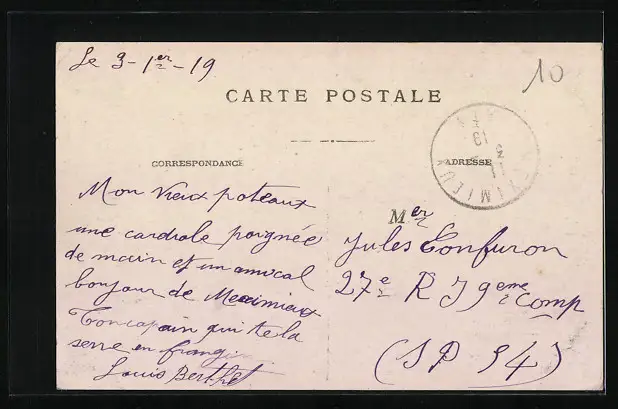 Le 3-1er-19
10
CARTE POSTALE
CORRESPONDANCE
ADRESSE
Mon vieux poteaux
une cardiole poignée
de main et un amical
bonjour de Meximieux
Ton copain qui te la
serre en frangin
Louis Berthet
Mer
Jules Confuron
27e R I 9eme comp
(SP 94)